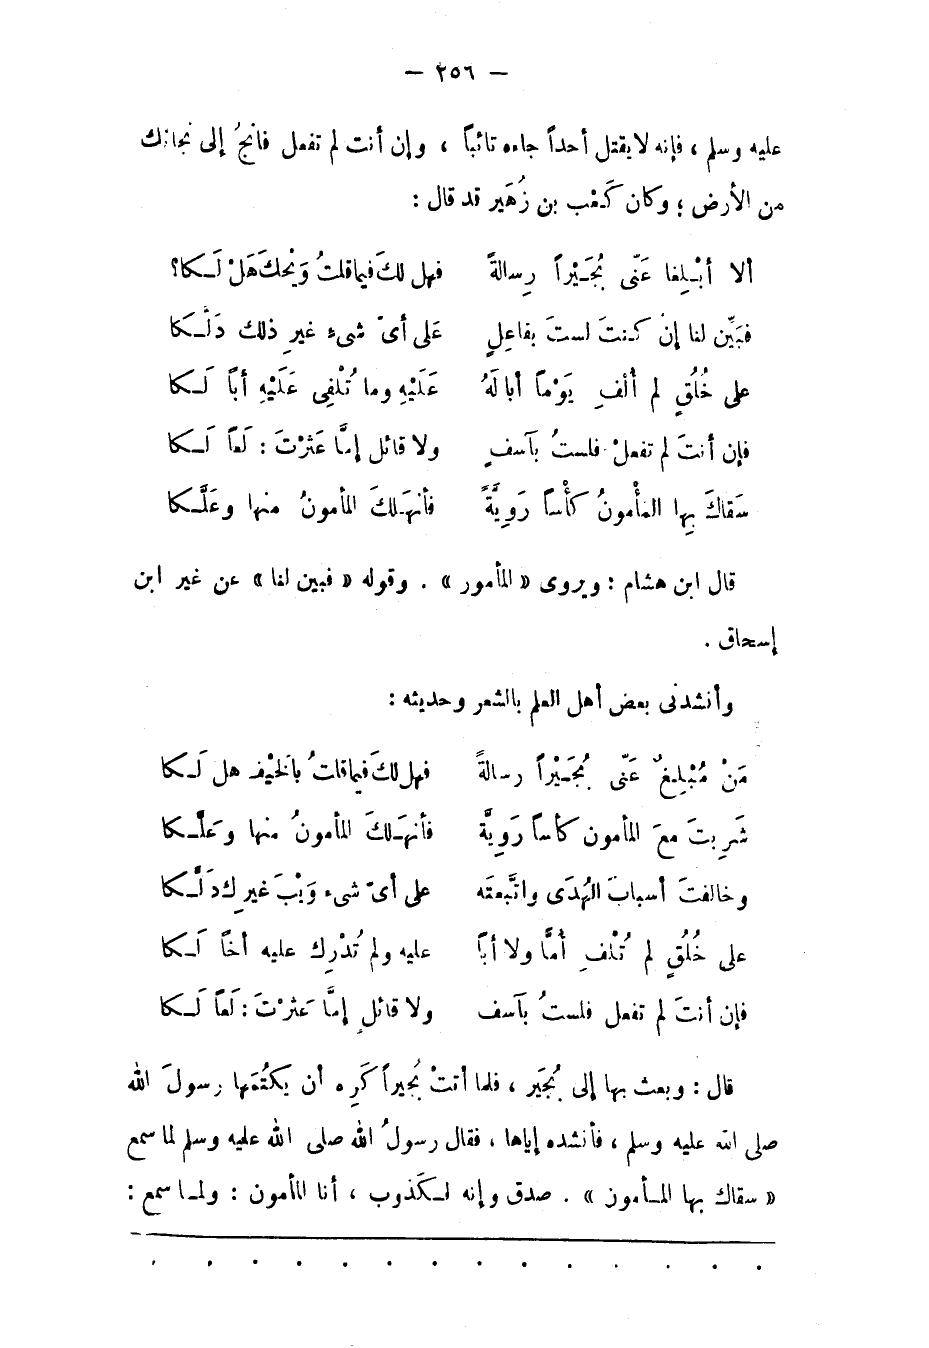 — ٢٥٦ —
عليه وسلم ، فإنه لا يقتل أحداً جاءه تائباً ، وإن أنت لم تفعل فانجُ إلى نجائك
من الأرض ؛ وكان كَعْب بن زُهَير قد قال :
ألا أبْـلِغا عَنّى بُجَـيْراً رِسالةً فهل لكَ فيما قلتُ وَيْحكَ هَلْ لَـكا؟
فبَيِّن لنا إن كـنتَ لستَ بفاعِلٍ عَلى أىّ شىء غيرِ ذلك دَلَّـكا
على خُلُقٍ لم أُلفِ يَوْماً أبا لَهُ عَلَيْهِ وما تُلْفِى عَلَيْهِ أباً لَـكا
فإن أنتَ لم تفعلْ فلستُ بآسفٍ ولا قائل إمَّا عَثرْتَ : لَعاً لَـكا
سَقاكَ بِها المأْمونُ كأْساً رَوِيَّةً فأنهَـلكَ المأمونُ منها وعَلَّـكا
قال ابن هشام : ويروى « المأمور » . وقوله « فبين لنا » عن غير ابن
إسحاق .
وأنشدنى بعض أهل العلم بالشعر وحديثه :
مَنْ مُبْلِغٌ عَنّى بُجَـيْراً رسالةً فهل لكَ فيما قلتُ بالخَيْف هل لَـكا
شَرِبتَ معَ المأمون كأساً رَوِيَّة فأنهَـلكَ المأمونُ منها وعَلَّـكا
وخالفتَ أسبابَ الهُدَى واتَّبعتَه على أىّ شىء وَيْبَ غيرِك دَلَّـكا
على خُلُقٍ لم تُلْفِ أُمًّا ولا أباً عليه ولم تُدْرِك عليه أخاً لَـكا
فإن أنتَ لم تفعل فلستُ بآسف ولا قائل إمَّا عَثرْتَ : لَعاً لَـكا
قال : وبعث بها إلى بُجَير ، فلما أتتْ بُجيراً كَرِه أن يكتُمَها رسولَ الله
صلى الله عليه وسلم ، فأنشده إياها ، فقال رسولُ الله صلى الله عليه وسلم لما سمع
« سقاك بها المـأمون » . صدق وإنه لـكَذوب ، أنا المأمون : ولمـا سمع :
. . . . . . . . . . . . . .